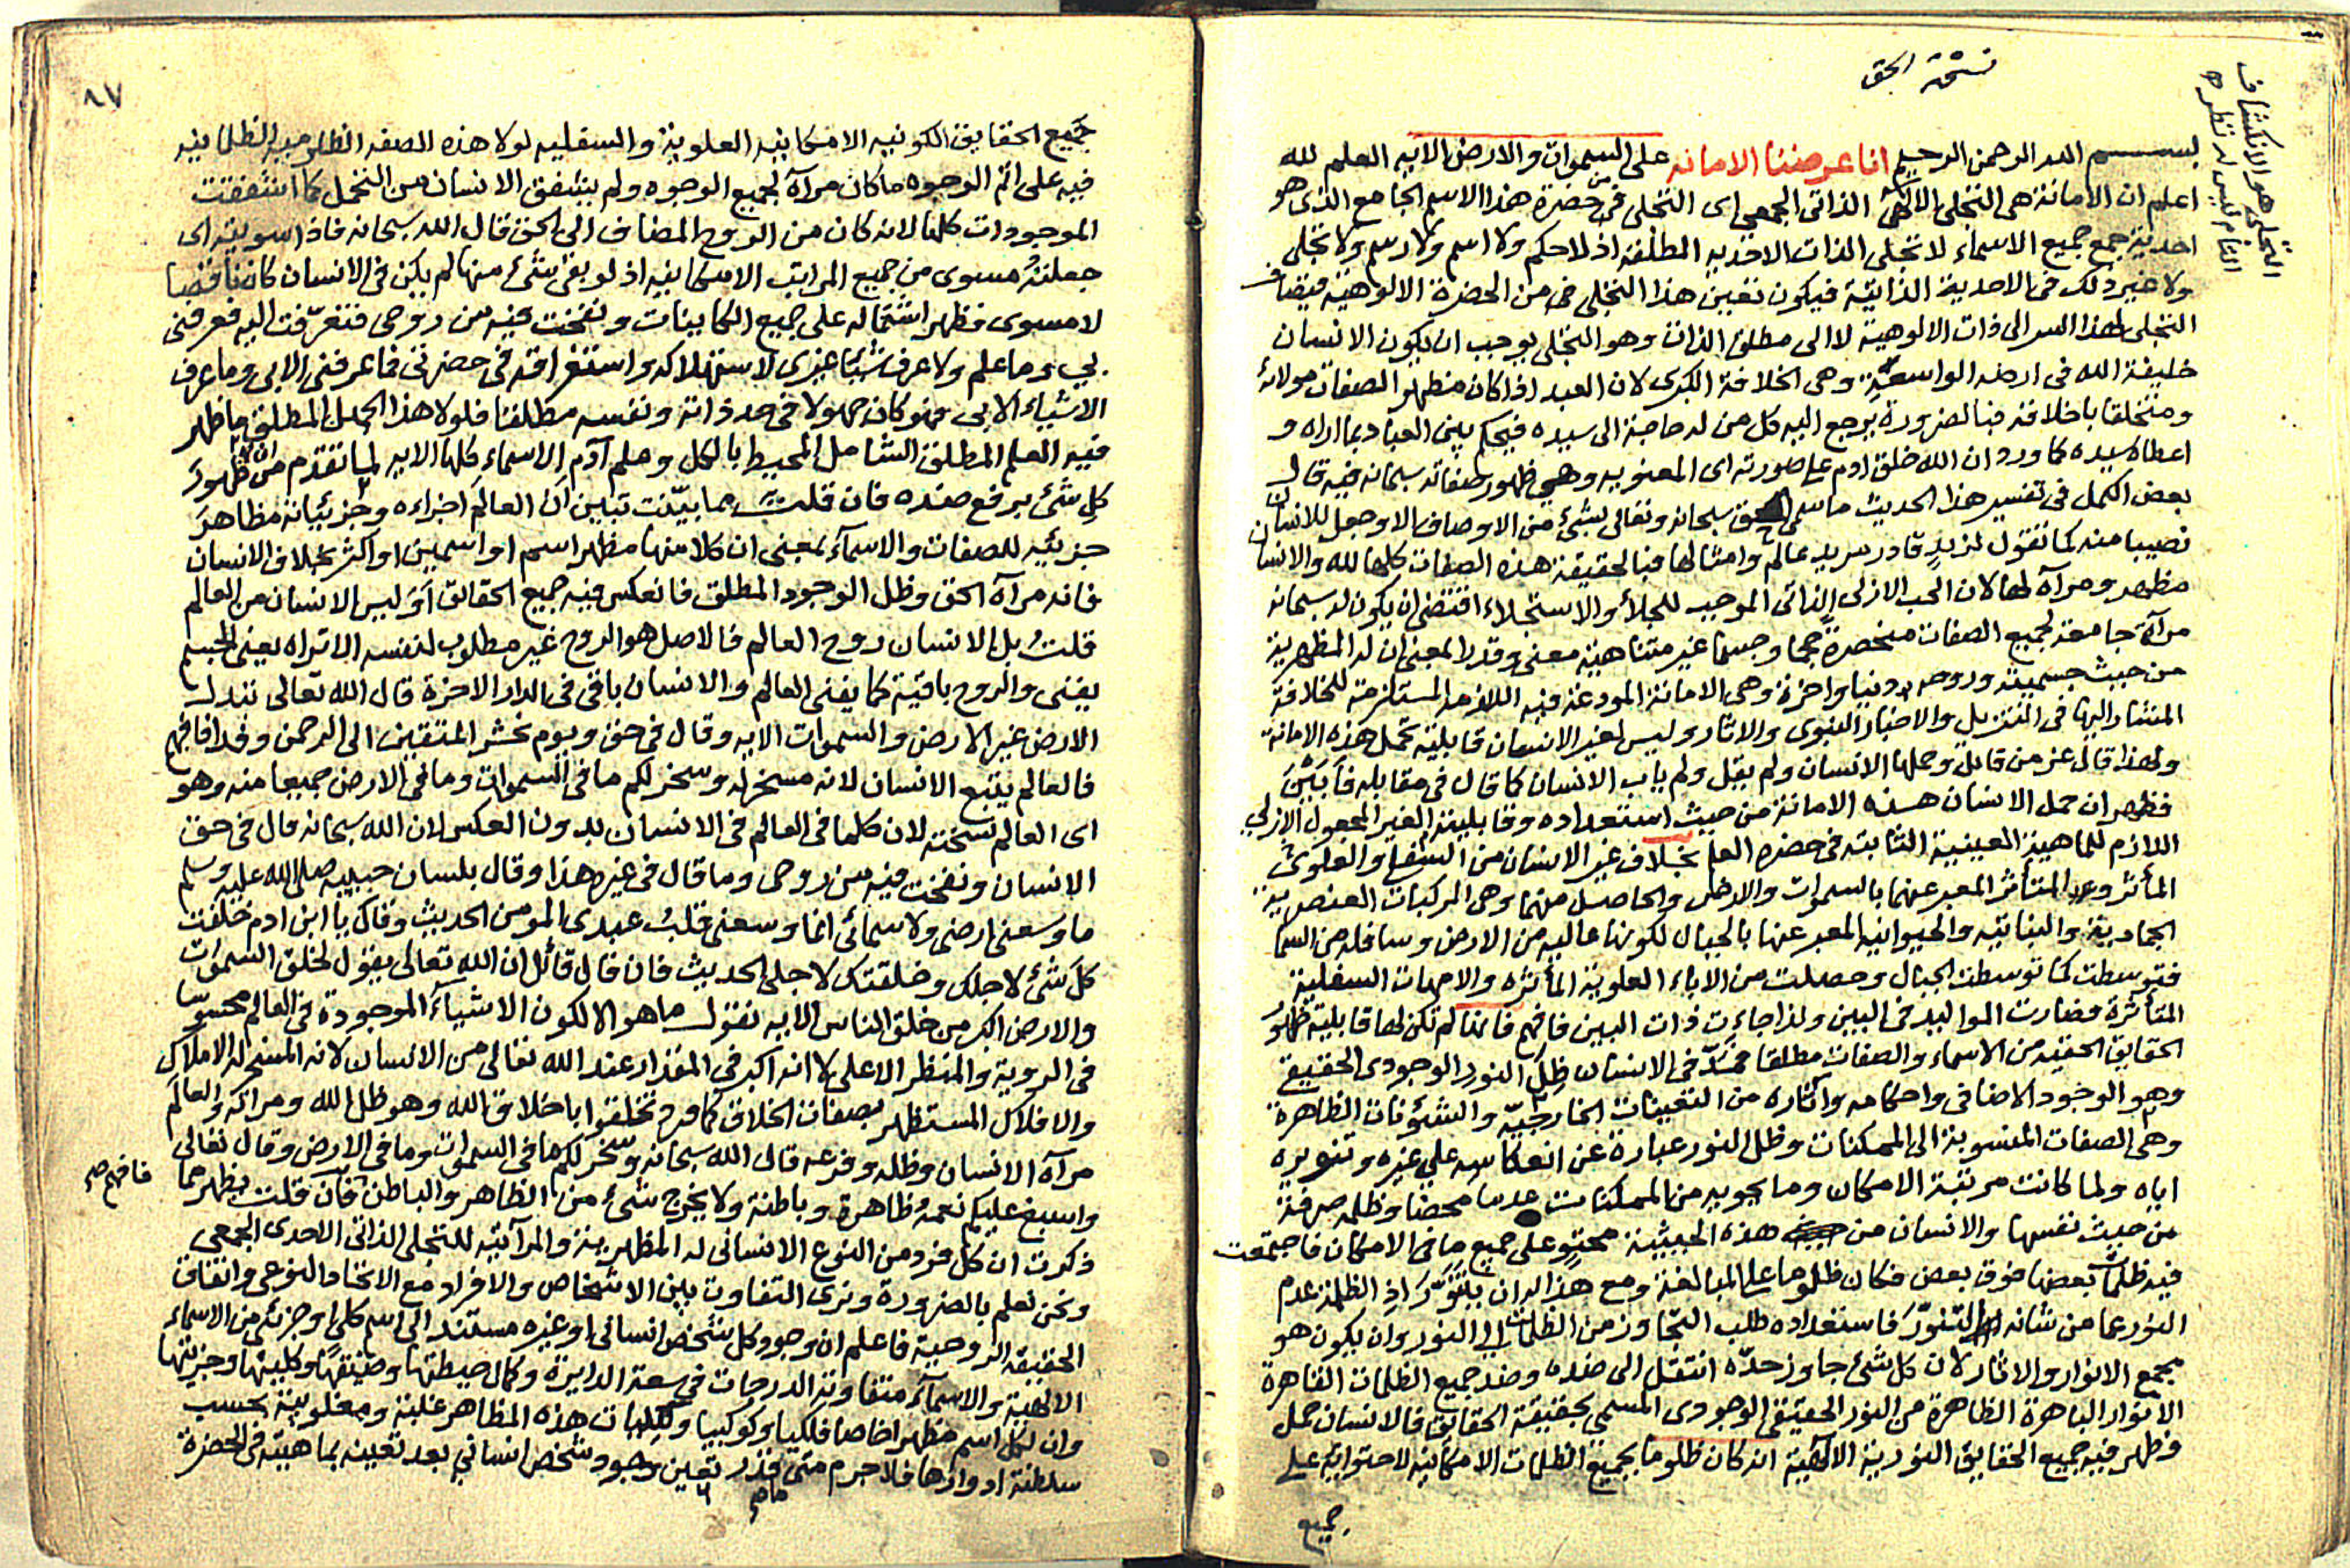 نسخة الحق
التجلي هو الانكشاف
التام ليس له نظره
بسم الله الرحمن الرحيم انا عرضنا الامانه على السموات والارض الايه العلم لله
اعلم ان الامانة هى التجلى الالهى الذاتى الجمعى اى التجلى من حضرة هذا الاسم الجامع الذى هو
احدية جمع جميع الاسماء لا تجلى الذات الاحديه المطلقه اذ لا حكم ولا اسم ولا رسم ولا تجلى
ولا غير ذلك فى الاحدية الذاتية فيكون تعين هذا التجلى من الحضرة الالوهية فيضاف
التجلى لهذا السر الى ذات الالوهية لا الى مطلق الذات وهو التجلى يوجب ان يكون الانسان
خليفة الله فى ارضه الواسعة وهى الخلافة الكبرى لان العبد اذا كان مظهر الصفات مولاه
ومتخلقا باخلاقه فبالضرورة يرجع اليه كل من له حاجة الى سيده فيحكم بين العباد بما اراه و
اعطاه سيده كما ورد ان الله خلق ادم على صورته اى المعنويه وهى ظهور صفاته سبحانه فيه قال
بعض الكمل فى تفسير هذا الحديث ما سمى الحق سبحانه وتعالى بشئ من الاوصاف الا وجعل للانسان
نصيبا منه كما تقول لزيد قادر مريد عالم وامثالها فبالحقيقة هذه الصفات كلها لله والانسان
مظهر ومرآة لها لان الحب الازلى الذاتى الموجب للجلاء والاستجلاء اقتضى ان يكون له سبحانه
مرآة جامعة لجميع الصفات منحصرة حجما وجسما غير متناهية معنى وقدرا بمعنى ان له المظهرية
من حيث جسميته وروحه دنيا واخرة وهى الامانة المودعة فيه اللازمة المستلزمة للخلافة
المشار اليها فى التنزيل والاخبار النبوى والاثار وليس لغير الانسان قابلية تحمل هذه الامانة
ولهذا قال عز من قائل وحملها الانسان ولم يقل ولم ياب الانسان كما قال فى مقابله فابين
فظهر ان حمل الانسان هذه الامانة من حيث استعداده وقابليته الغير المجعول الازلي
اللازم للماهية العينية الثابتة فى حضرة العلم بخلاف غير الانسان من السفلى والعلوى
المأثر والمتأثر المعبر عنهما بالسموات والارض والحاصل منهما وهى المركبات العنصرية
الجمادية والنباتيه والحيوانيه المعبر عنها بالجبال لكونها عاليه من الارض وسافله من السما
فتوسطت كما توسطت الجبال وحصلت من الاباء العلوية المأثره والامهات السفلية
المتأثرة فصارت المواليد فى البين ولذا جاءت ذات البين فافهم فانها لم تكن لها قابلية ظهور
الحقايق الحقيه من الاسماء والصفات مطلقا فى الانسان ظل النور الوجودى الحقيقى
وهو الوجود الاضافى واحكامه وآثاره من التعينات الخارجية والشئونات الظاهرة
وهى الصفات المنسوبة الى الممكنات وظل النور عبارة عن انعكاسه على غيره وتنويره
اياه ولما كانت مرتبة الامكان وما يحويه من الممكنات عدما محضا وظلمه صرفة
من حيث نفسها والانسان من هذه الحيثية محتو على جميع ما فى الامكان فاجتمعت
فيه ظلمات بعضها فوق بعض فكان ظلوما على المبالغة ومع هذا له ان يتنور اذ الظلمة عدم
النور عما من شانه التنور فاستعداده طلب التجاوز من الظلمات الى النور وان يكون هو
مجمع الانوار والاثار لان كل شئ جاوز حده انتقل الى ضده وضد جميع الظلمات القاهرة
الانوار الباهرة الظاهرة من النور الحقيقى الوجودى المسمى بحقيقة الحقايق فالانسان حمل
وظهر فيه جميع الحقايق النورية الالهية انه كان ظلوما بجميع الظلمات الامكانيه لاحتوائه على
جميع
٨٧
جميع الحقايق الكونيه الامكانيه العلوية والسفليه لولا هذه الصفه الظلوميه الظلمانيه
فيه على اتم الوجوه ما كان مرآة لجميع الوجوه ولم يشفق الانسان من التحمل كما اشفقت
الموجودات كلها لانه كان من الروح المضاف الى الحق قال الله سبحانه فاذا سويته اى
جعلته مسوى من جميع المراتب الامكانيه اذ لو بقى شئ منها لم يكن فى الانسان كان ناقصا
لا مسوى فظهر اشتماله على جميع الكاينات ونفخت فيه من روحى فتعرفت اليه فعرفنى
بى وما علم ولا عرف شيئا غيرى لاستهلاكه واستغراقه فى حضرتى فما عرفنى الا بى وما عرف
الاشياء الا بى فهو كان جهولا فى حد ذاته ونفسه مطلقا فلولا هذا الجهل المطلق ما ظهر
فيه العلم المطلق الشامل المحيط بالكل وعلم آدم الاسماء كلها الايه لما تقدم من ان ظهور
كل شئ برفع ضده فان قلت مما بينت تبين ان العالم اجزاءه وجزئياته مظاهر
جزئيه للصفات والاسماء بمعنى ان كلا منها مظهر اسم او اسمين او اكثر بخلاف الانسان
فانه مرآة الحق وظل الوجود المطلق فانعكس فيه جميع الحقائق اوليس الانسان من العالم
قلت بل الانسان روح العالم فالاصل هو الروح غير مطلوب لنفسه الا تراه يفنى الجسم
يفنى والروح باقية كما يفنى العالم والانسان باقى فى الدار الاخرة قال الله تعالى تبدل
الارض غير الارض والسموات الايه وقال فى حق ويوم نحشر المتقين الى الرحمن وفدا فافهم
فالعالم يتبع الانسان لانه مسخر له وسخر لكم ما فى السموات وما فى الارض جميعا منه وهو
اى العالم نسخته لان كلما فى العالم فى الانسان بدون العكس لان الله سبحانه قال فى حق
الانسان ونفخت فيه من روحى وما قال فى غيره هذا وقال بلسان حبيبه صلى الله عليه وسلم
ما وسعنى ارضى ولا سمائى انما وسعنى قلب عبدى المومن الحديث وقال يا ابن ادم خلقت
كل شئ لاجلك وخلقتك لاجلى الحديث فان قال قائل ان الله تعالى يقول لخلق السموات
والارض اكبر من خلق الناس الايه نقول ما هو الا لكون الاشياء الموجودة فى العالم محسوسا
فى الروية والمنظر الاعلى لا انه اكبر فى المقدار عند الله تعالى من الانسان لانه المسخر له الاملاك
والافلاك المستظهر بصفات الخلاق كما ورد تخلقوا باخلاق الله وهو ظل الله ومراته والعالم
مرآة الانسان وظله وفرعه قال الله سبحانه وسخر لكم ما فى السموات وما فى الارض وقال تعالى
واسبغ عليكم نعمه ظاهرة وباطنة ولا يخرج شئ من الظاهر والباطن فان قلت بظهر مما
فافهم صح
ذكرت ان كل فرد من النوع الانسانى له المظهرية والمرآتية للتجلى الذاتى الاحدى الجمعى
ونحن نعلم بالضرورة ونرى التفاوت بين الاشخاص والافراد مع الاتحاد النوعى واتفاق
الحقيقة الروحية فاعلم ان وجود كل شخص انسانى او غيره مستند الى اسم كلى او جزئى من الاسماء
الالهية والاسماء متفاوتة الدرجات فى سعة الدايرة وكمال حيطتها وضيقها وكليتها وجزئيتها
وان لكل اسم مظهرا خاصا فلكيا وكوكبيا ولكليات هذه المظاهر غلبة ومغلوبية بحسب
سلطنة ادوارها فلا جرم متى قدر تعين وجود شخص انساني بعد تعينه بماهيته فى الحضرة